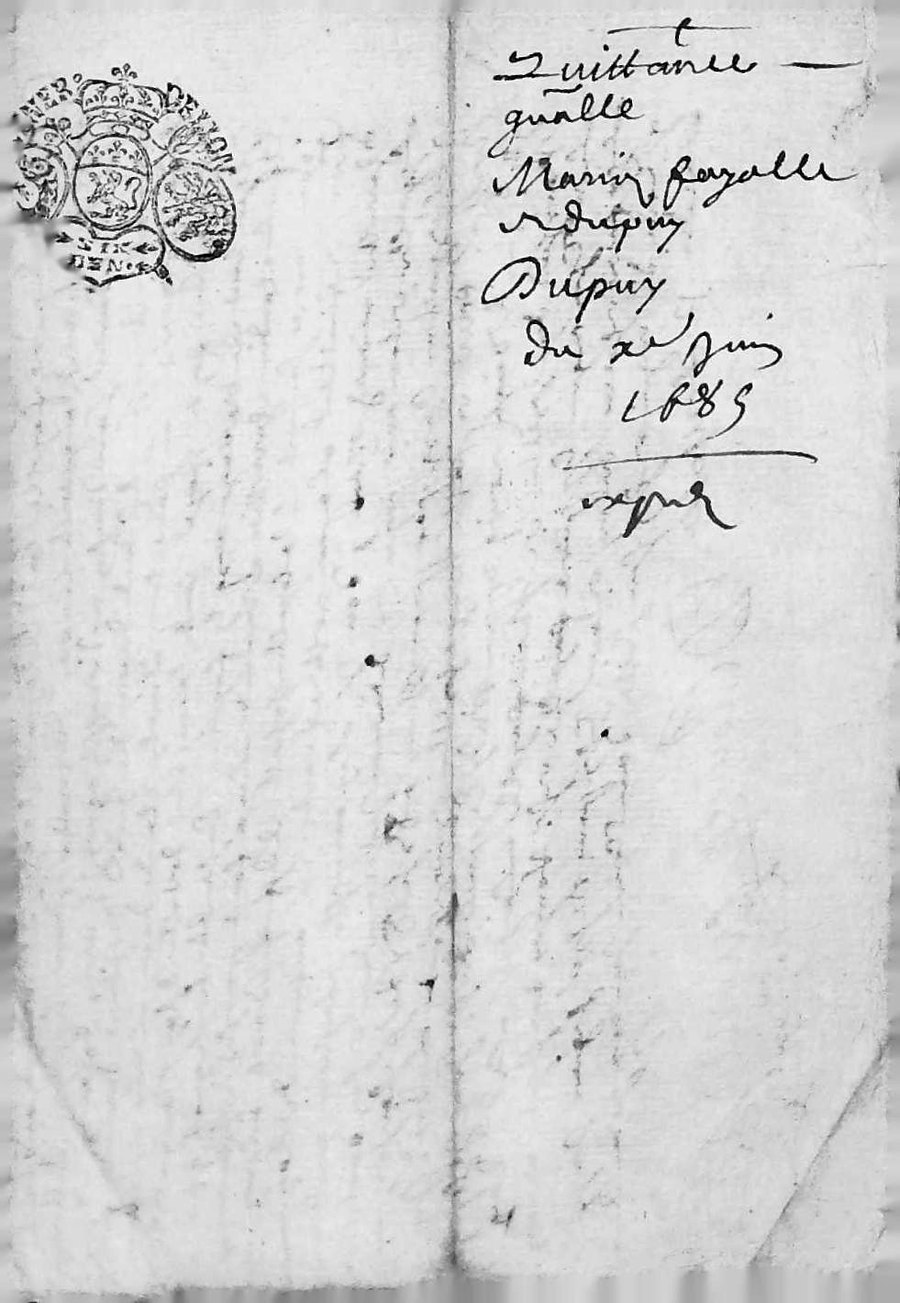 GENER· DE LYON
SIX
DEN·
Quittance
gnalle
Marie fayolle
et dupuy
Dupuy
du xe juin
1685
expédié